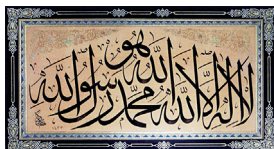 لا اله الا الله هو محمد رسول الله